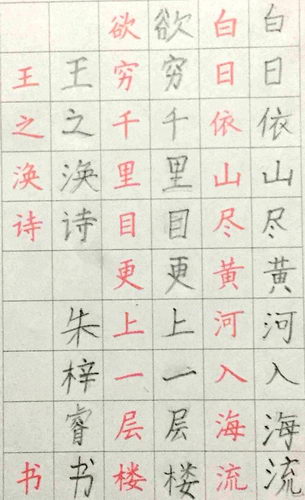 白日依山尽黄河入海流
白日依山尽黄河入海流
欲穷千里目更上一层楼
欲穷千里目更上一层楼
王之涣诗朱梓睿书
王之涣诗书